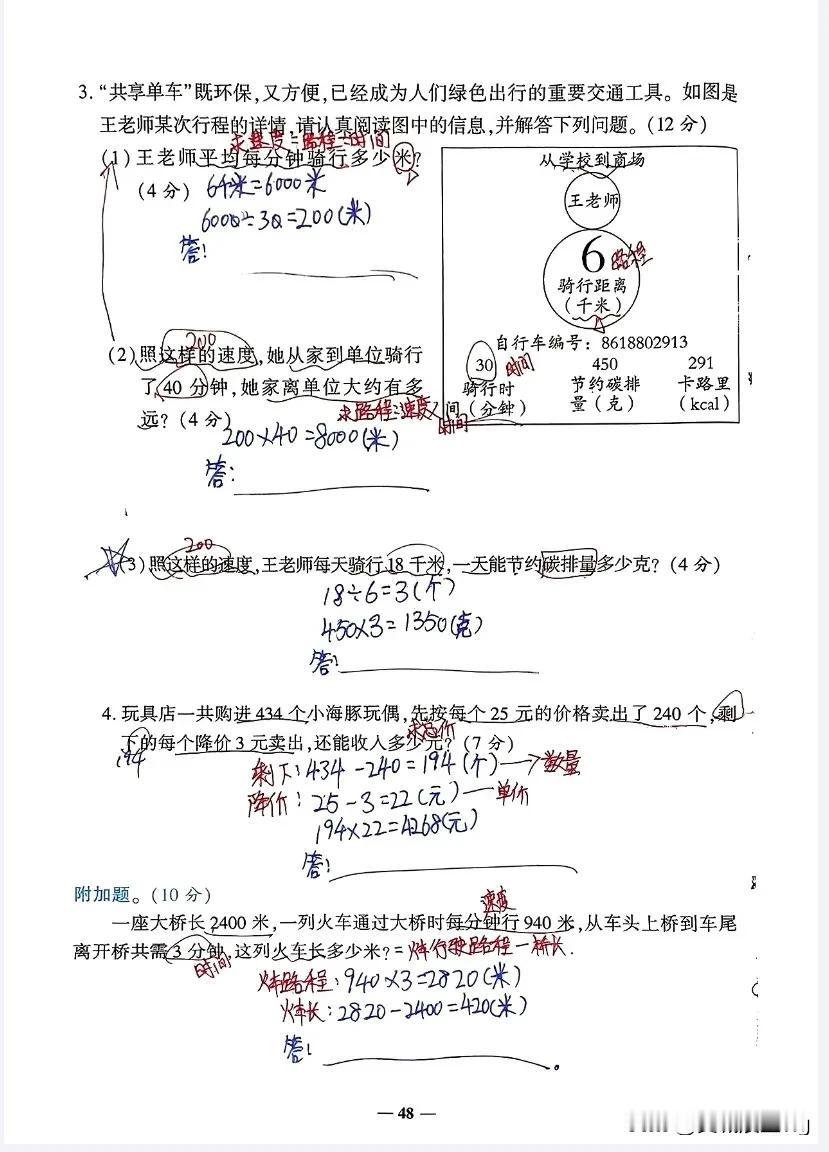 3. “共享单车”既环保,又方便,已经成为人们绿色出行的重要交通工具。如图是
王老师某次行程的详情,请认真阅读图中的信息,并解答下列问题。(12 分)
求速度=路程÷时间
(1) 王老师平均每分钟骑行多少米?
(4 分)
6千米=6000米
6000÷30=200(米)
答:
从学校到商场
王老师
6 路程
骑行距离
(千米)
自行车编号: 8618802913
30 时间 450 291
骑行时 节约碳排 卡路里
间(分钟) 量(克) (kcal)
200
(2) 照这样的速度,她从家到单位骑行
了 40 分钟,她家离单位大约有多
远? (4 分)
求路程=速度×时间
200×40=8000(米)
答:
200
(3) 照这样的速度,王老师每天骑行 18 千米,一天能节约碳排量多少克? (4 分)
18÷6=3(个)
450×3=1350(克)
答:
4. 玩具店一共购进 434 个小海豚玩偶,先按每个 25 元的价格卖出了 240 个,剩
求总价
下的每个降价 3 元卖出,还能收入多少元? (7 分)
194
剩下:434-240=194(个)→数量
降价:25-3=22(元)—单价
194×22=4268(元)
答:
附加题。(10 分)
速度
一座大桥长 2400 米,一列火车通过大桥时每分钟行 940 米,从车头上桥到车尾
离开桥共需 3 分钟,这列火车长多少米?=火车行驶路程-桥长.
时间
火车路程:940×3=2820(米)
火车长:2820-2400=420(米)
答:
— 48 —